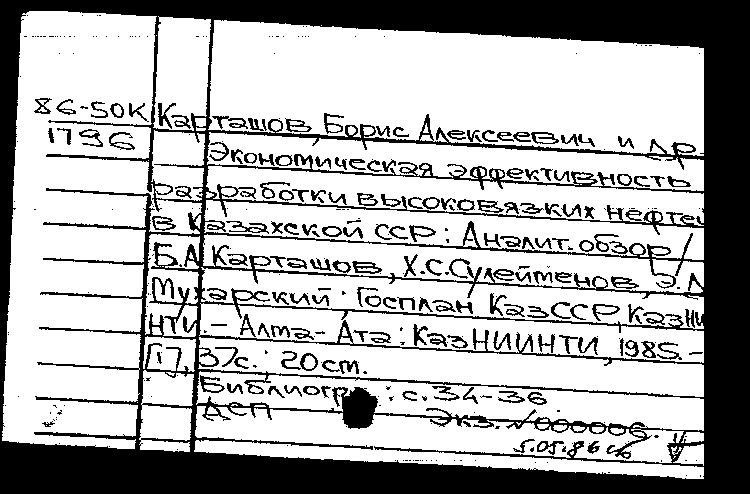 86-50К Карташов, Борис Алексеевич и др.
1796 Экономическая эффективность
разработки высоковязких нефтей
в Казахской ССР : Аналит. обзор /
Б.А Карташов, Х.С.Сулейменов, Э.Д
Мухарский ; Госплан КазССР, КазНИ
НТИ. – Алма-Ата : КазНИИНТИ, 1985. –
[1], 37с. ; 20 см.
Библиогр : с. 34-36.
ДСП Экз. №000006.
5.05.86